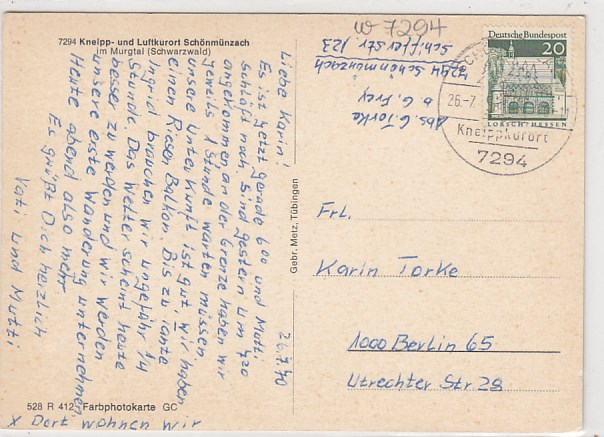 7294 Kneipp- und Luftkurort Schönmünzach
im Murgtal (Schwarzwald)
26.7.70
Liebe Karin!
Es ist jetzt gerade 6 00 und Mutti
schläft noch. Sind gestern um 4 20
angekommen an der Grenze haben wir
jeweils 1 Stunde warten müssen.
unsere Unterkunft ist gut, wir haben
einen Riesen Balkon. Bis zu Tante
Ingrid brauchen wir ungefähr 1/4
Stunde. Das Wetter scheint heute
besser zu werden und wir werden
unsere erste Wanderung unternehmen.
Heute abend also mehr
Es grüßt Dich herzlich
Vati und Mutti
528 R 412 Farbphotokarte GC
x Dort wohnen wir
Gebr. Metz, Tübingen
W 7294
Abs. G Torke
b G. Frey
7244 Schönmünzach
Schifferstr. 123
Deutsche Bundespost
20
LORSCH · HESSEN
26.-7.
Kneippkurort
7294
Frl.
Karin Torke
1000 Berlin 65
Utrechter Str. 28